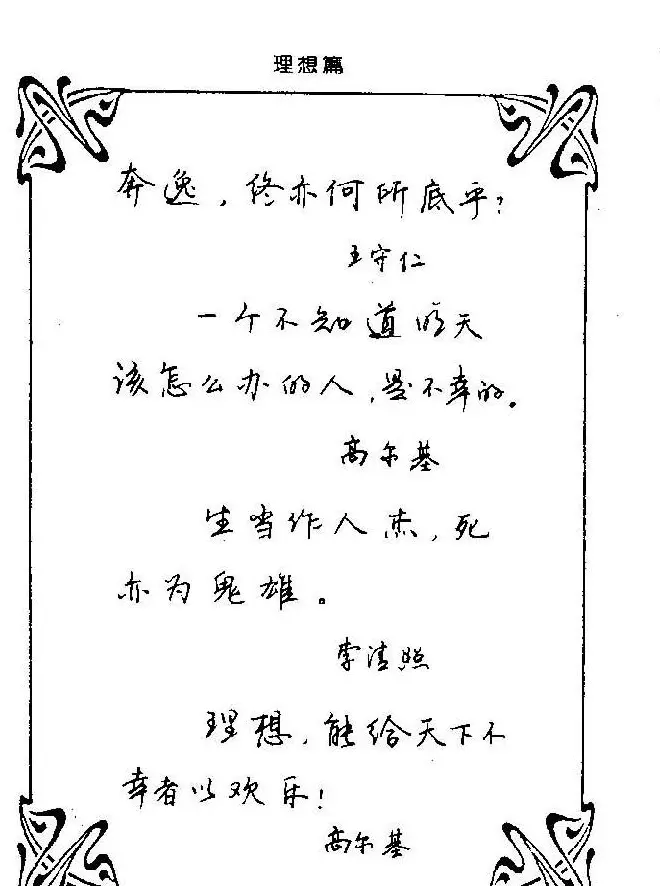 理想篇
奔逸，终亦何所底乎？
王守仁
一个不知道明天
该怎么办的人，是不幸的。
高尔基
生当作人杰，死
亦为鬼雄。
李清照
理想，能给天下不
幸者以欢乐！
高尔基